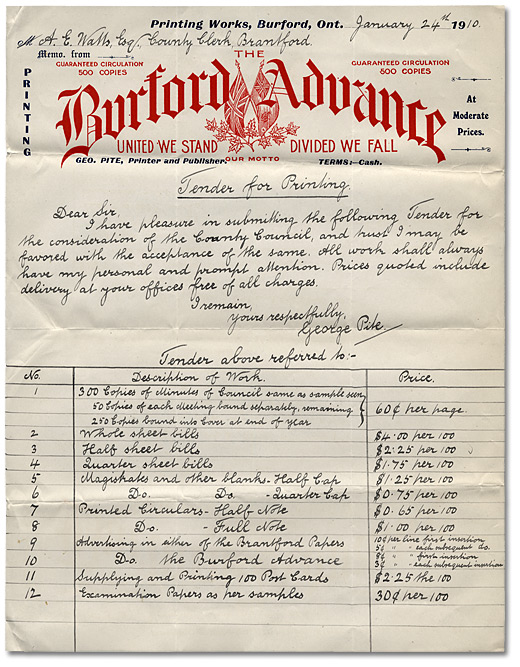 Printing Works, Burford, Ont. January 24th 1910.
M A. E. Watts, Esq., County Clerk, Brantford.
Memo. from
THE
GUARANTEED CIRCULATION
500 COPIES
GUARANTEED CIRCULATION
500 COPIES
PRINTING
Burford Advance
At
Moderate
Prices.
UNITED WE STAND DIVIDED WE FALL
GEO. PITE, Printer and Publisher. OUR MOTTO TERMS:—Cash.
Tender for Printing
Dear Sir,
I have pleasure in submitting the following Tender for
the consideration of the County Council, and trust I may be
favored with the acceptance of the same. All work shall always
have my personal and prompt attention. Prices quoted include
delivery at your offices free of all charges.
I remain,
Yours respectfully,
George Pite.
Tender above referred to:-
No. Description of Work. Price.
1 300 Copies of Minutes of Council same as sample seen
50 Copies of each Meeting bound separately, remaining 60¢ per page.
250 Copies bound into Cover at end of year
2 Whole sheet bills $4.00 per 100
3 Half sheet bills $2.25 per 100
4 Quarter sheet bills $1.75 per 100
5 Magistrates and other blanks - Half Cap $1.25 per 100
6 Do. Do. - Quarter Cap $0.75 per 100
7 Printed Circulars - Half Note $0.65 per 100
8 Do. - Full Note $1.00 per 100
9 Advertising in either of the Brantford Papers 10¢ per line first insertion
5¢ " " - each subsequent Do.
10 Do. the Burford Advance 8¢ " " first insertion
3¢ " " - each subsequent insertion
11 Supplying and Printing 100 Post Cards $2.25 the 100
12 Examination Papers as per samples 30¢ per 100